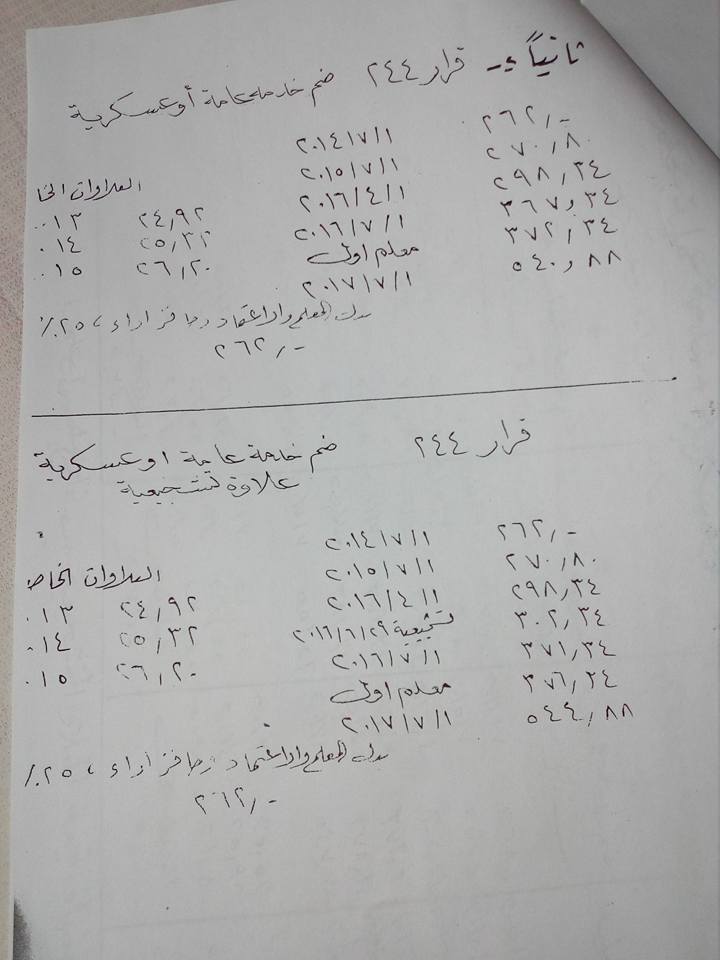 ثانياً :- قرار ٢٤٤ ضم خدمة عامة أو عسكرية
٢٦٢,- ٢٠١٤/٧/١
٢٧٠,٨٠ ٢٠١٥/٧/١
٢٩٨,٣٤ ٢٠١٦/٤/١ العلاوات الخا
٣٦٧,٣٤ ٢٠١٦/٧/١ ٢٤,٩٢ ١٣
٣٧٢,٣٤ معلم اول ٢٥,٣٢ ١٤
٥٤٠,٨٨ ٢٠١٧/٧/١ ٢٦,٢٠ ١٥
بدل المعلم والاعتماد وحافز اداء ، ٢٥٪
٢٦٢,-
قرار ٢٤٤ ضم خدمة عامة او عسكرية
علاوة تشجيعية
٢٦٢,- ٢٠١٤/٧/١
٢٧٠,٨٠ ٢٠١٥/٧/١ العلاوات الخاص
٢٩٨,٣٤ ٢٠١٦/٤/١ ٢٤,٩٢ ١٣
٣٠٢,٣٤ تشجيعية ٢٠١٦/٦/٢٩ ٢٥,٣٢ ١٤
٣٧١,٣٤ ٢٠١٦/٧/١ ٢٦,٢٠ ١٥
٣٧٦,٣٤ معلم اول
٥٤٤,٨٨ ٢٠١٧/٧/١
بدل المعلم والاعتماد وحافز اداء ، ٢٥٪
٢٦٢,-